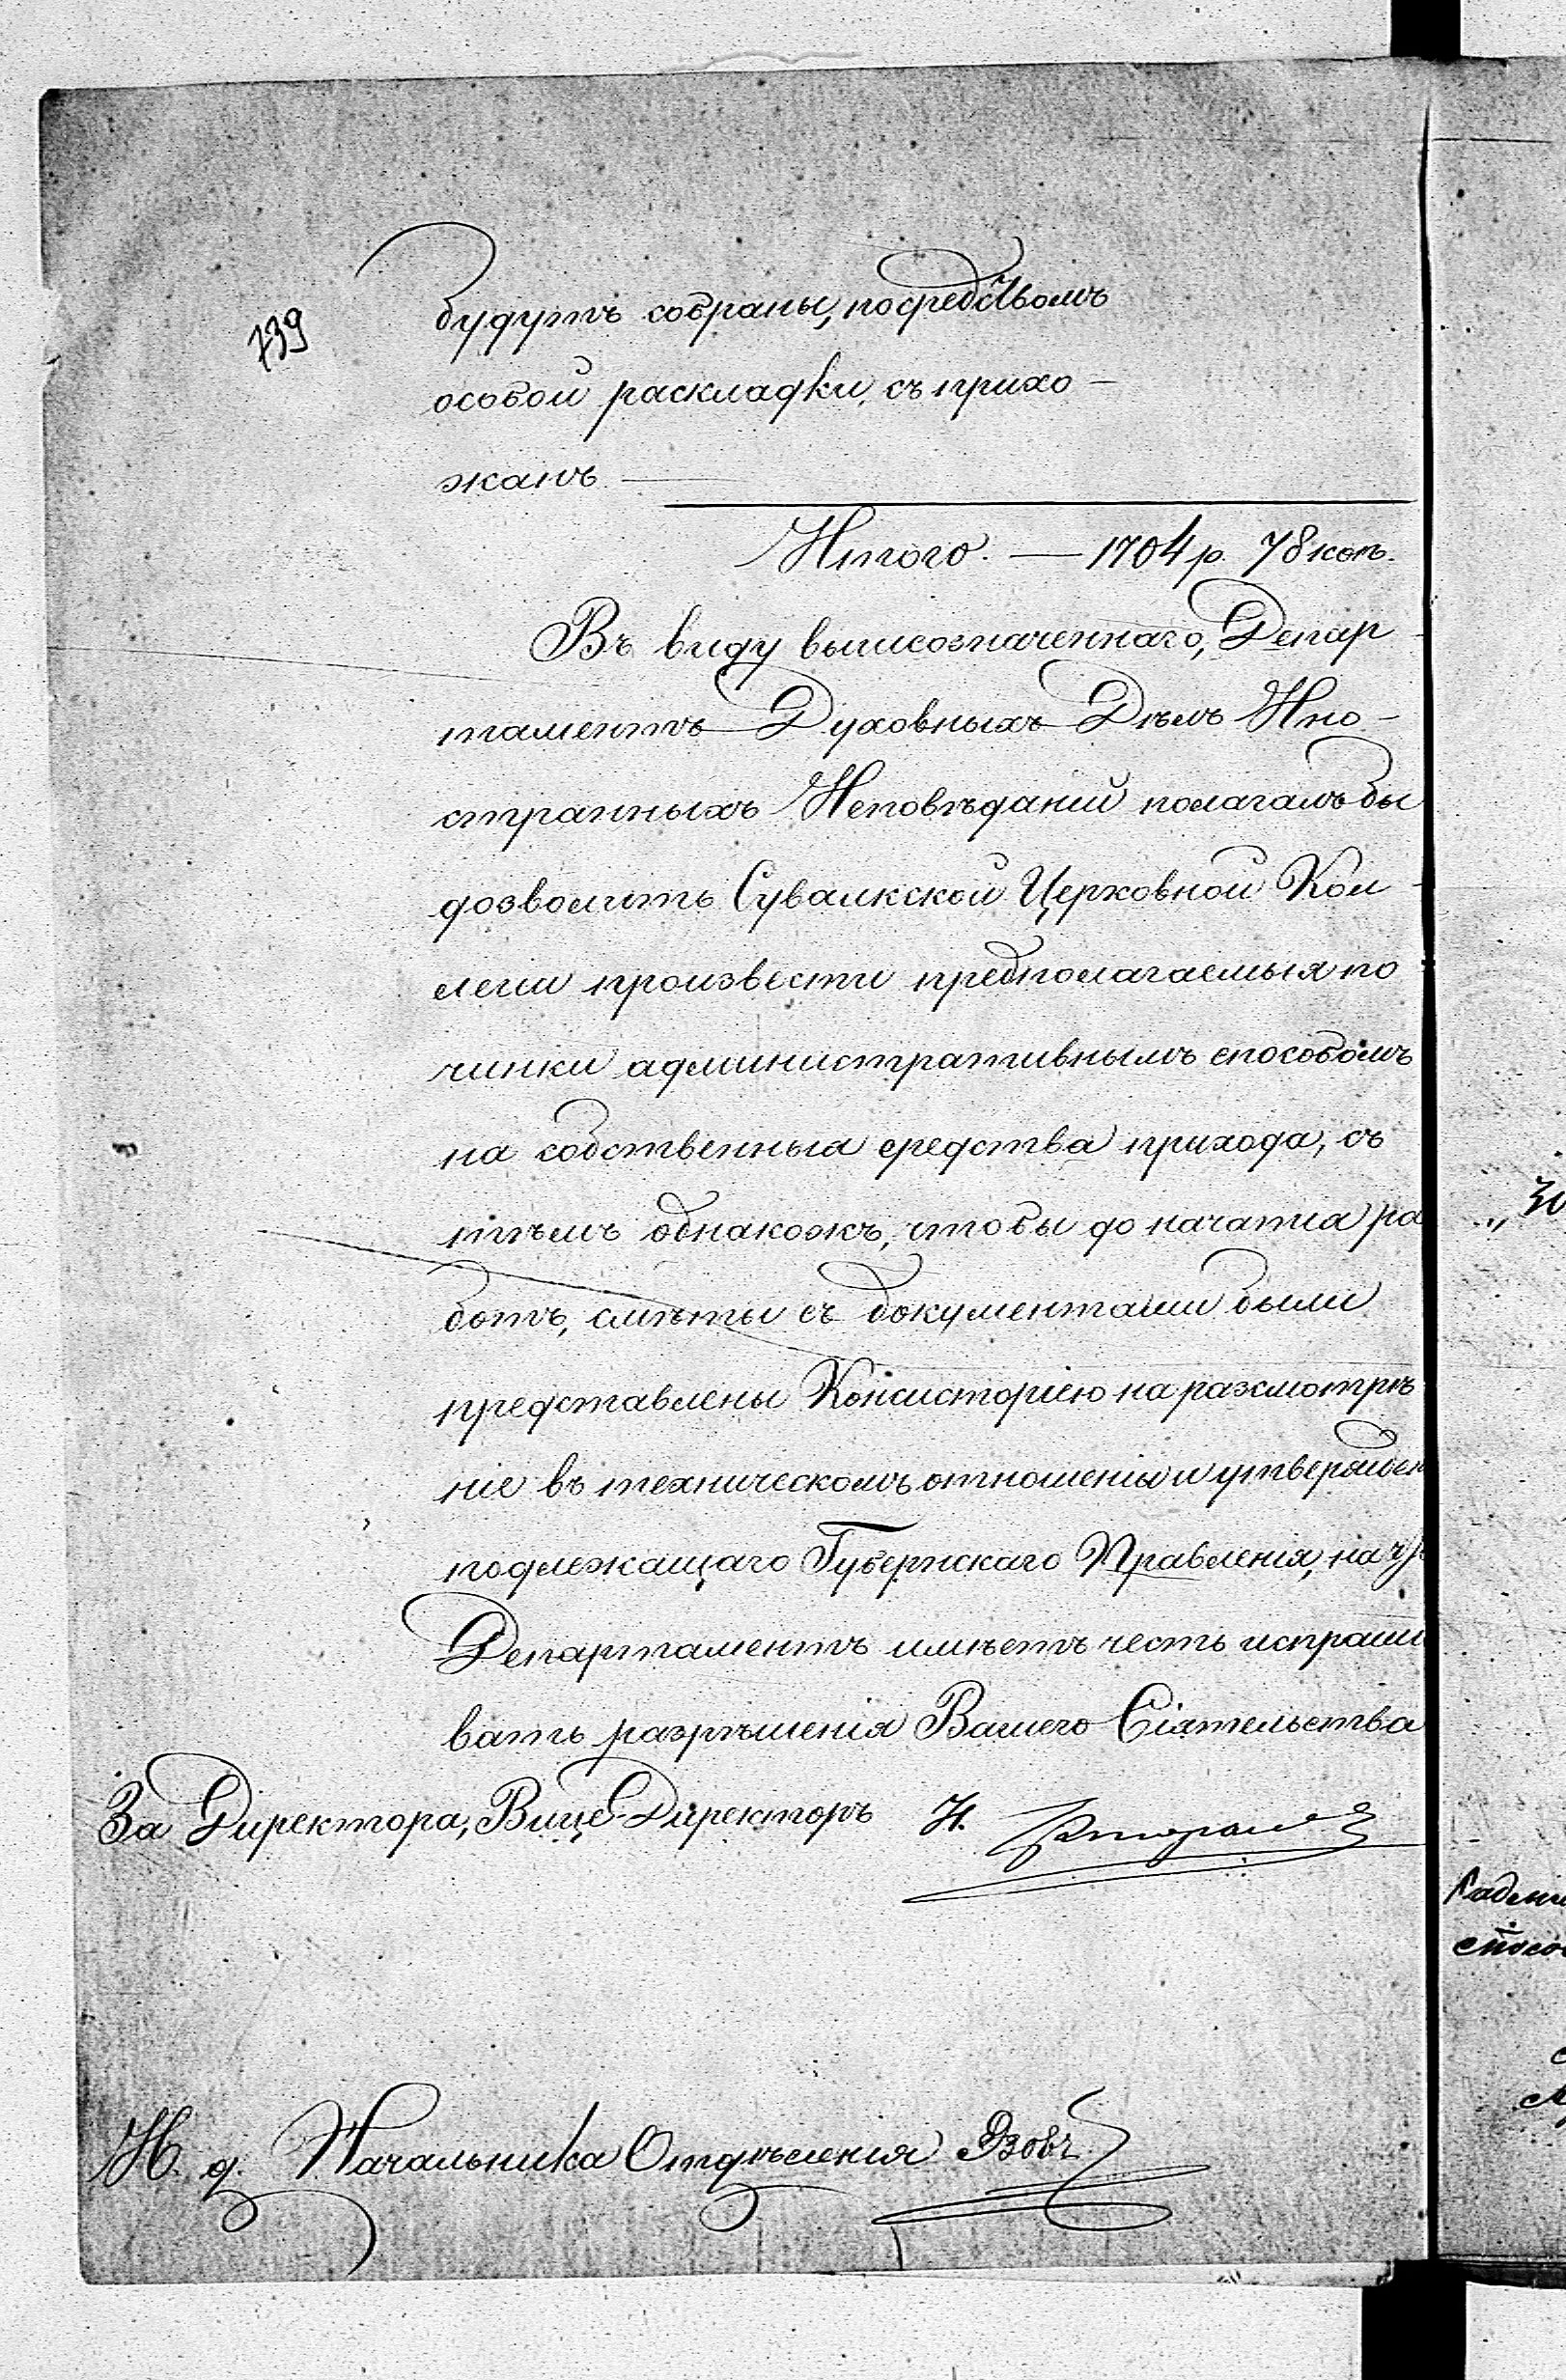 739
будутъ собраны, посредствомъ
особой раскладки, съ прихо-
жанъ. —
Итого. — 1704 р. 78 коп.
Въ виду вышеозначеннаго, Депар-
таментъ Духовныхъ Дѣлъ Ино-
странныхъ Исповѣданій полагалъ бы
дозволить Сувалкской Церковной Кол-
легіи произвести предполагаемыя по
чинки административнымъ способомъ
на собственныя средства прихода, съ
тѣмъ однакожъ, чтобы до начатія ра
ботъ, смѣты съ документами были
представлены Консисторіею на разсмотрѣ
ніе въ техническомъ отношеніи и утвержден
подлежащаго Губернскаго Правленія, на
Департаментъ имѣетъ честь испраши
вать разрѣшенія Вашего Сіятельства
За Директора, Вице-Директоръ
И. д. Начальника Отдѣленія